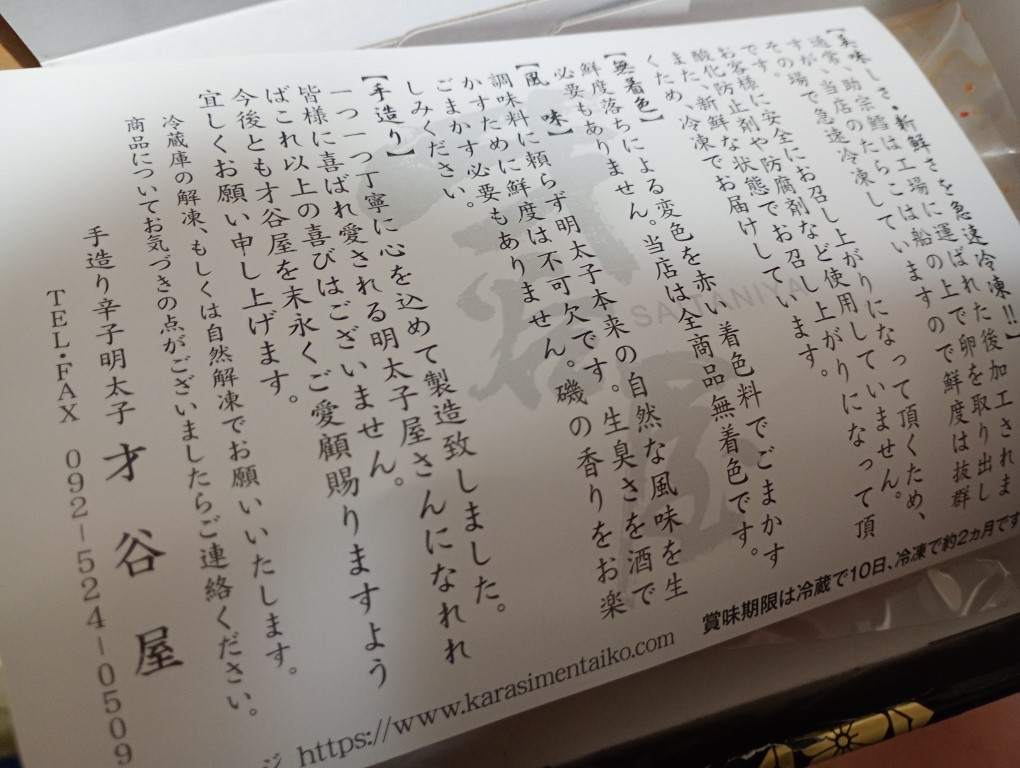 【美味しさ・新鮮さを急速冷凍!!】
通常、助宗鱈は工場に運ばれた後加工されま
すが、当店のたらこは船の上で卵を取り出し
その場で急速冷凍していますので鮮度は抜群
です。
お客様に安全にお召し上がりになって頂くため、
酸化防止剤や防腐剤など使用していません。
また、新鮮な状態でお召し上がりになって頂
くため、冷凍でお届けしています。
【無着色】
鮮度落ちによる変色を赤い着色料でごまかす
必要もありません。当店は全商品無着色です。
【風 味】
調味料に頼らず明太子本来の自然な風味を生
かすために鮮度は不可欠です。生臭さを酒で
ごまかす必要もありません。磯の香りをお楽
しみください。
【手造り】
一つ一つ丁寧に心を込めて製造致しました。
皆様に喜ばれ愛される明太子屋さんになれれ
ばこれ以上の喜びはございません。
今後とも才谷屋を末永くご愛顧賜りますよう
宜しくお願い申し上げます。
冷蔵庫の解凍、もしくは自然解凍でお願いいたします。
商品についてお気づきの点がございましたらご連絡ください。
手造り辛子明太子 才谷屋
TEL・FAX 092-524-0509
賞味期限は冷蔵で10日、冷凍で約2ヵ月です
ジ https://www.karasimentaiko.com
才谷屋
SAITANIYA